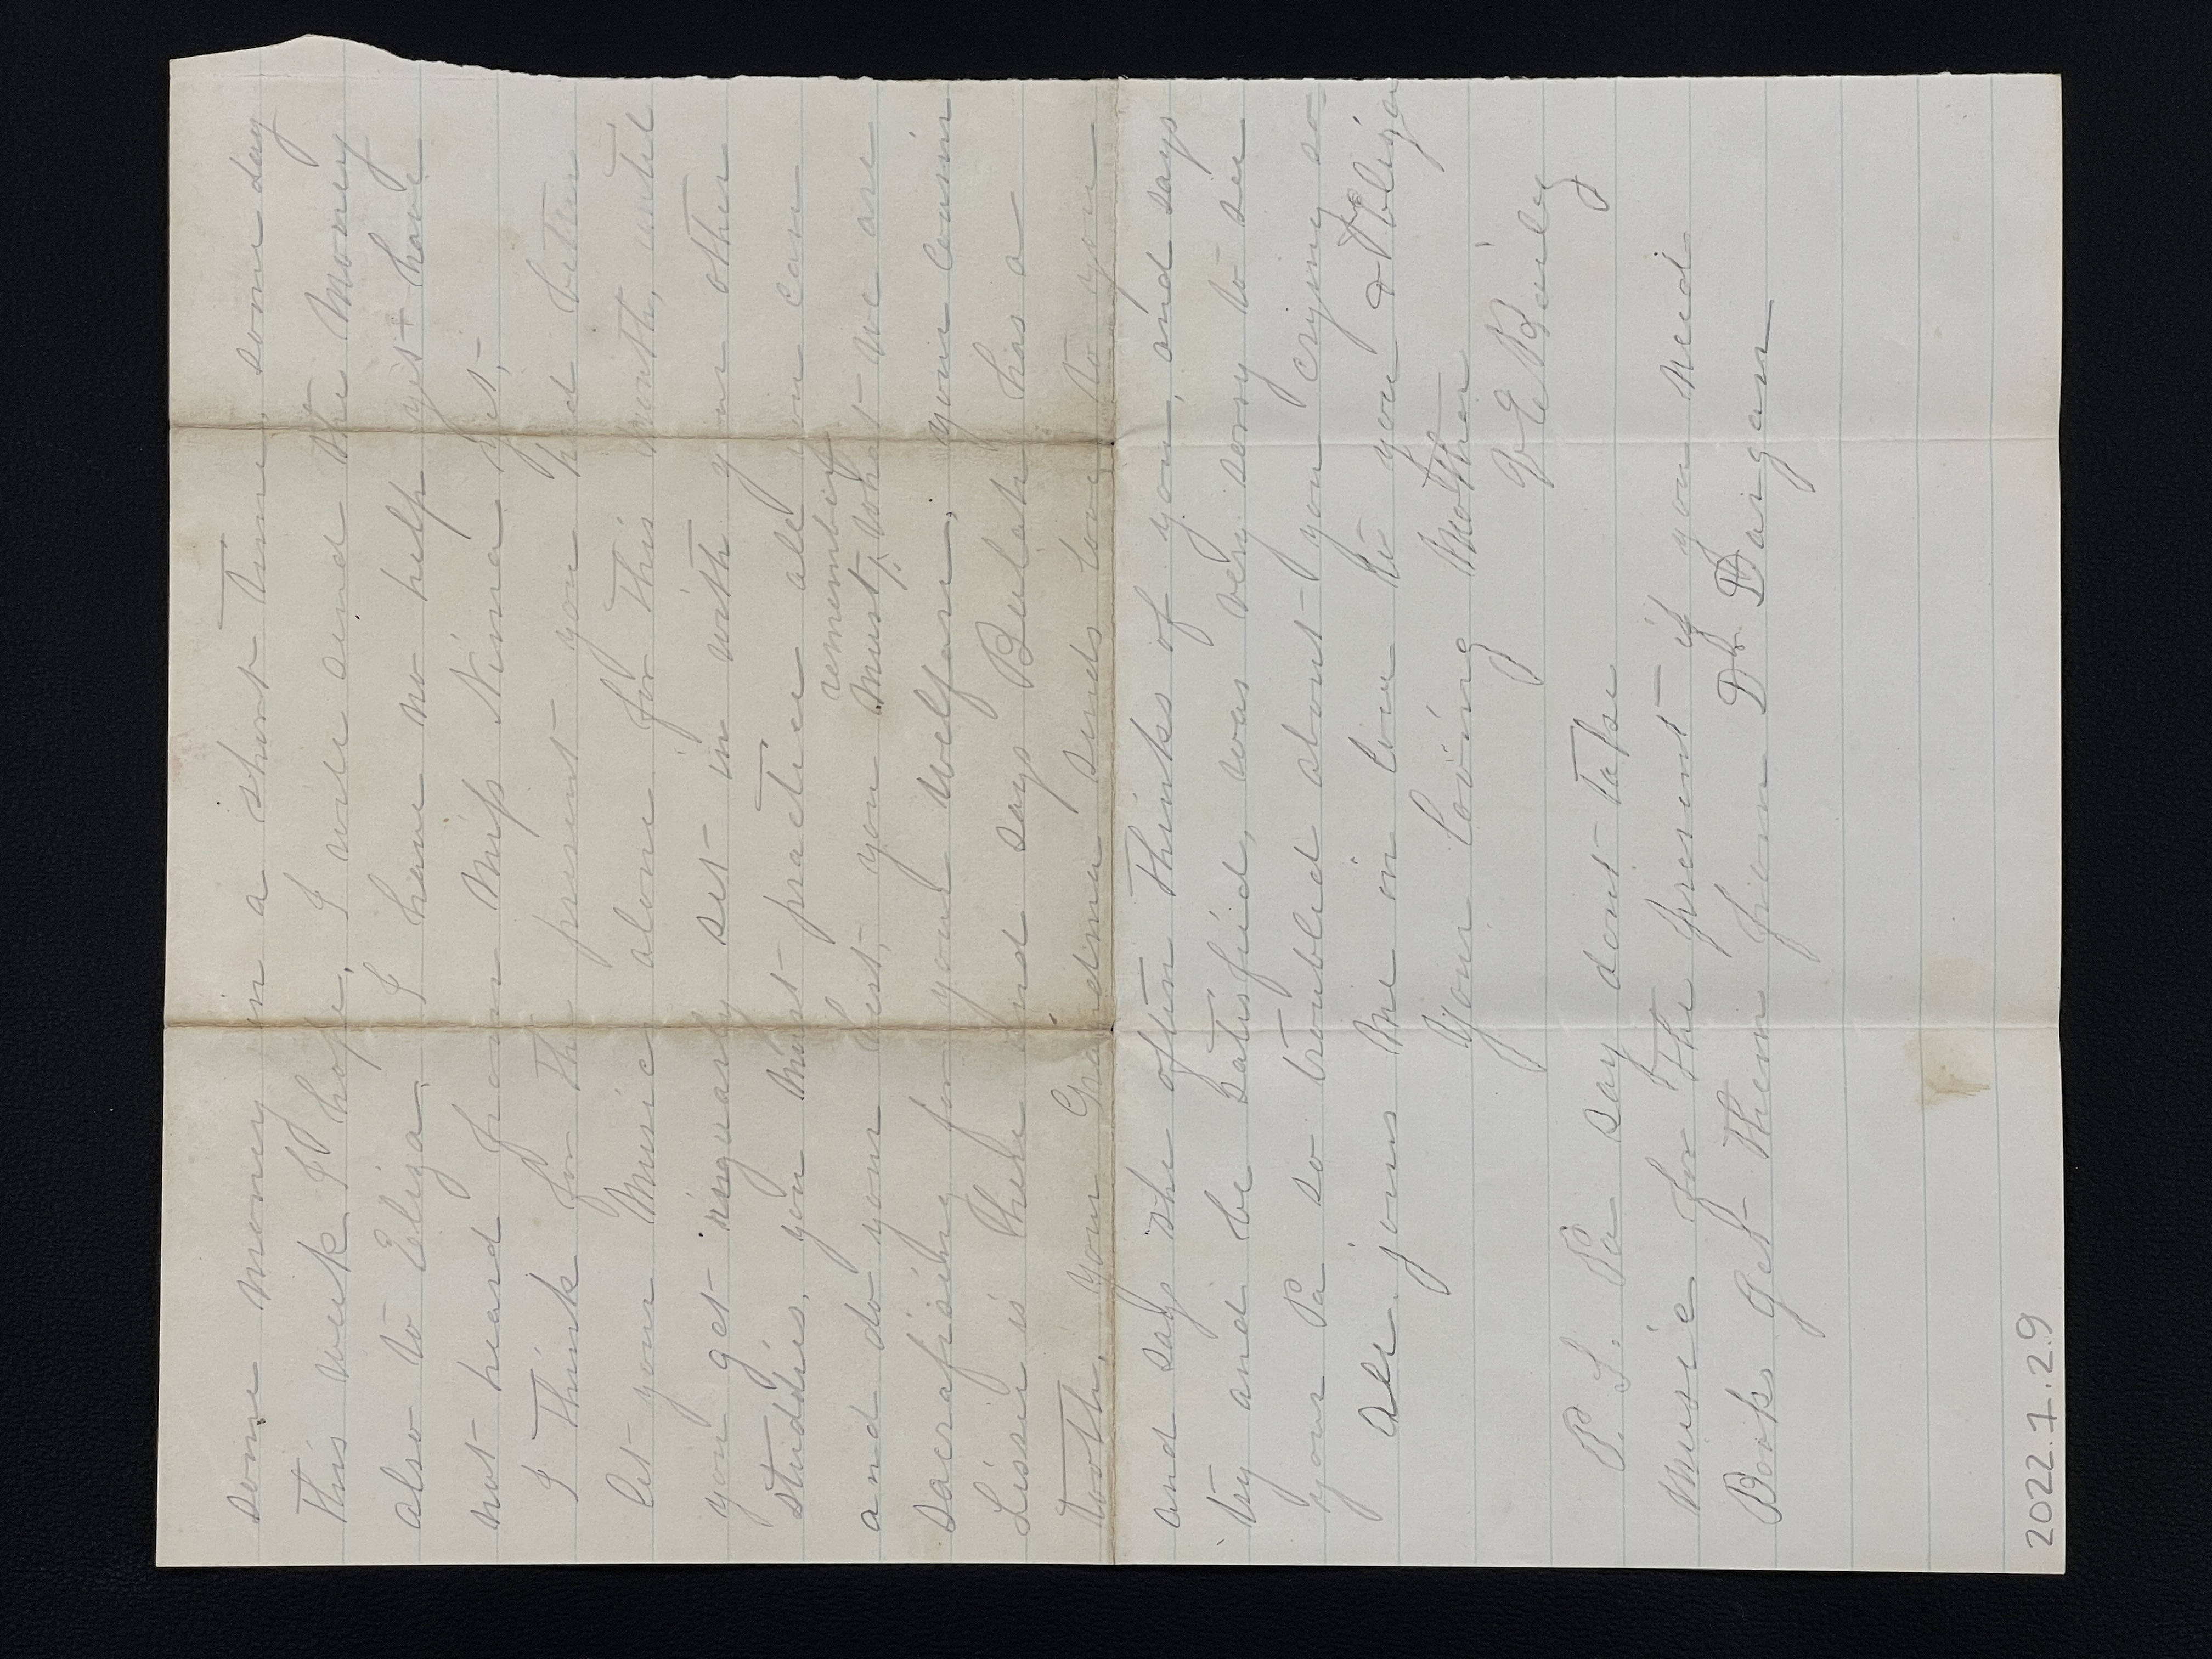 some money in a short time, some day
this week I hope, I will send the money
also to Eliza. I have no help yet + have
not heard from Miss Nina yet,
I think for the present you had better
let your Music alone for this month, until
you get reguarly set in with your other
studdies, you must practice all you can
remember
and do your best, you must, what we are
sacrafising for your welfare, your Cousin
Lissie is there and says Beulah has a
tooth, your Grandma sends love to you
and says she often thinks of you, and says
try and be satisfied, was very sorry to see
your Pa so troubled about you crying so
All joins me in love to you & Eliza
Your loving Mother
V E Bailey
P. S. Pa say dont take
Music for the present if you need
Books get them from Dr Dargan
2022.1.2.9